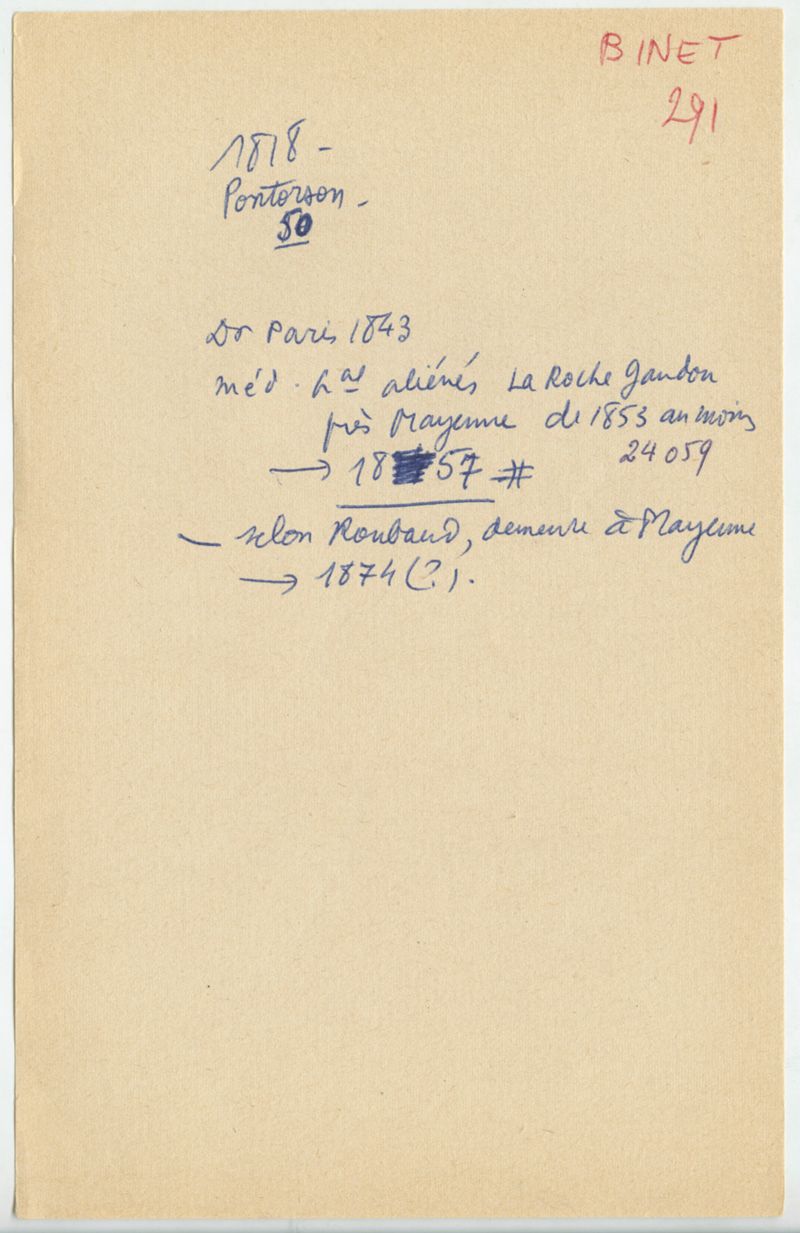 BINET
291
1818 -
Pontorson -
50
Dr Paris 1843
méd. hal aliénés La Roche Gandon
près Mayenne de 1853 au moins
24059
→ 18 57 #
— selon Roubaud, demeure à Mayenne
→ 1874 (?).